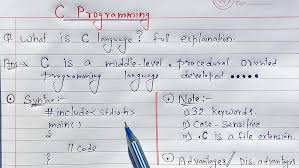 C Programming
Q. What is C language? full explanation.
Ans→ C is a middle-level, procedural oriented
programming language developed .....
⊙ Syntax:-
#include<stdio.h>
main()
{
// code
}
⊙ Note:-
i) 32 keywords.
ii) Case-Sensitive
iii) .C is a file extension.